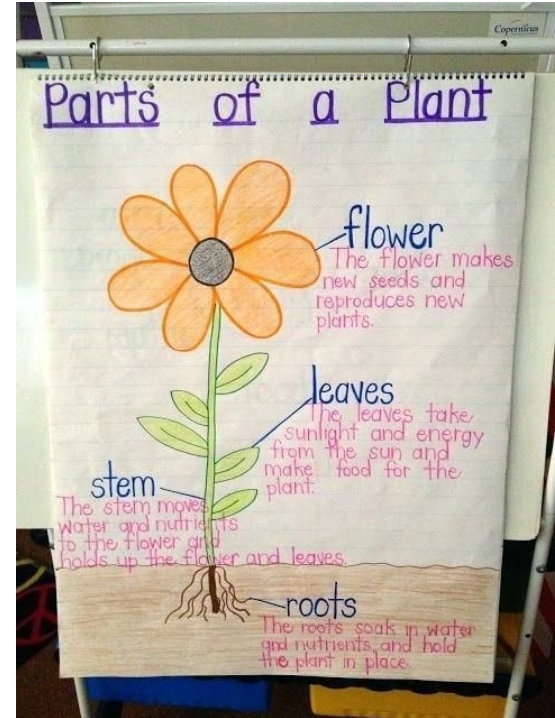 Copernicus
Parts of a Plant
flower
The flower makes
new seeds and
reproduces new
plants.
leaves
The leaves take
sunlight and energy
from the sun and
make food for the
plant.
stem
The stem moves
water and nutrients
to the flower and
holds up the flower and leaves.
roots
The roots soak in water
and nutrients, and hold
the plant in place.